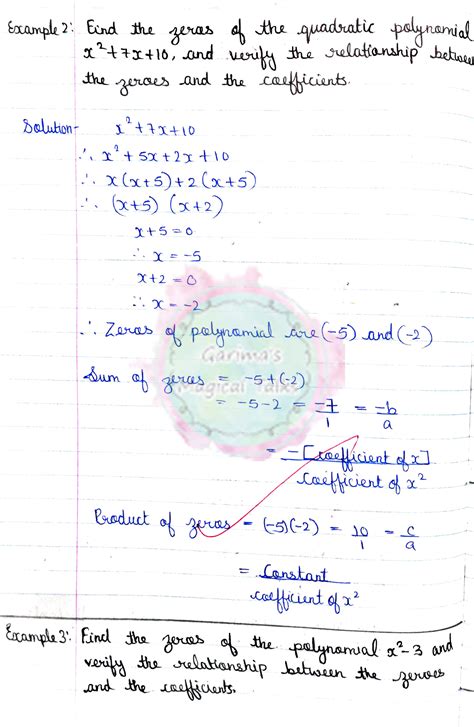 Example 2: Find the zeros of the quadratic polynomial
x²+7x+10, and verify the relationship between
the zeroes and the coefficients.
Solution- x²+7x+10
∴ x²+5x+2x+10
∴ x(x+5)+2(x+5)
∴ (x+5) (x+2)
x+5=0
∴ x = -5
x+2=0
∴ x = -2
∴ Zeros of polynomial are (-5) and (-2)
Garima's
Magical Talks
Sum of zeros = -5+(-2)
= -5-2 = -7/1 = -b/a
= -[coefficient of x]/Coefficient of x²
Product of zeros = (-5)(-2) = 10/1 = c/a
= Constant/coefficient of x²
Example 3: Find the zeros of the polynomial x²-3 and
verify the relationship between the zeroes
and the coefficients.